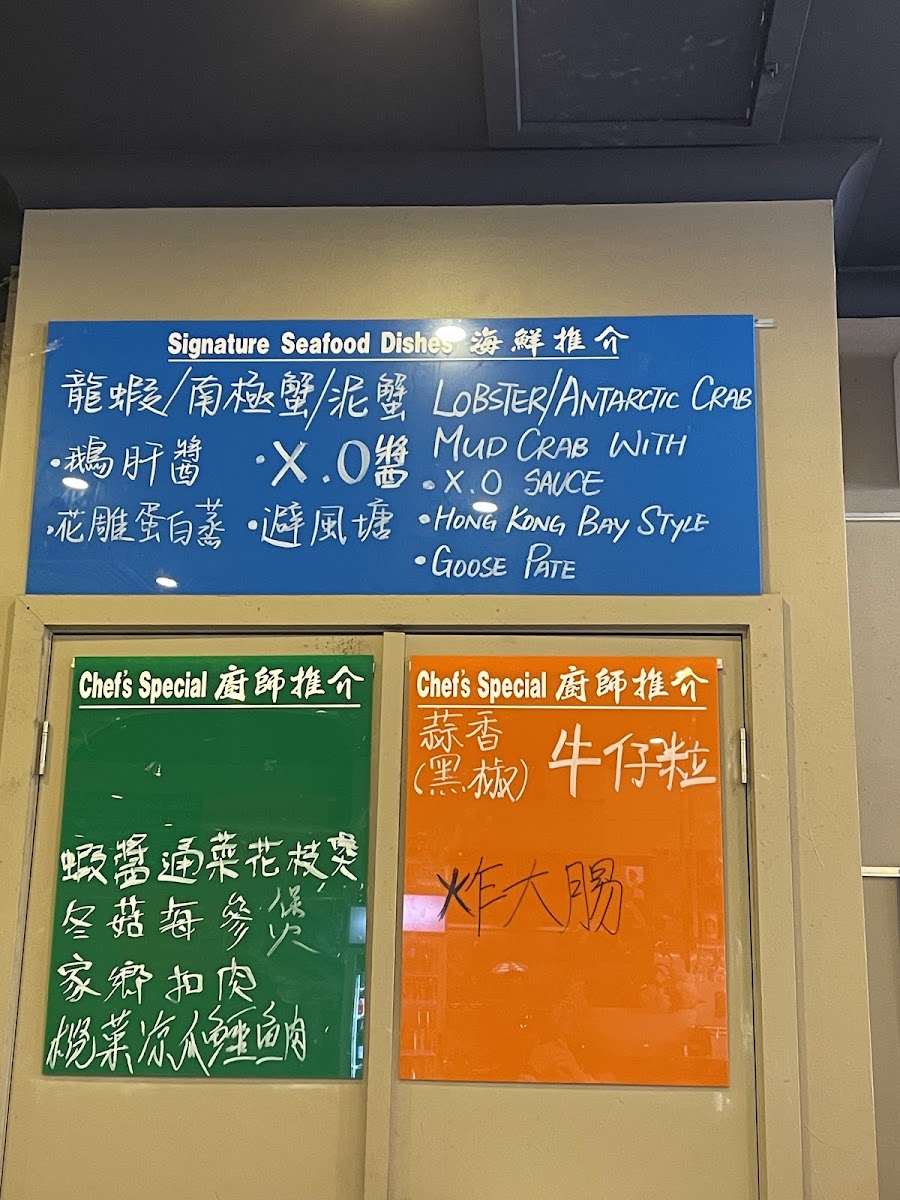 Signature Seafood Dishes 海鮮推介
龍蝦/南極蟹/泥蟹
・鵝肝醬 ・X.O醬
・花雕蛋白蒸 ・避風塘
LOBSTER/ANTARCTIC CRAB
MUD CRAB WITH
• X.O SAUCE
• HONG KONG BAY STYLE
• GOOSE PATE
Chef's Special 廚師推介
蝦醬通菜花枝煲
冬菇海參煲
家鄉扣肉
榄菜凉瓜鱷魚肉
Chef's Special 廚師推介
蒜香
(黑椒) 牛仔粒
炸大腸